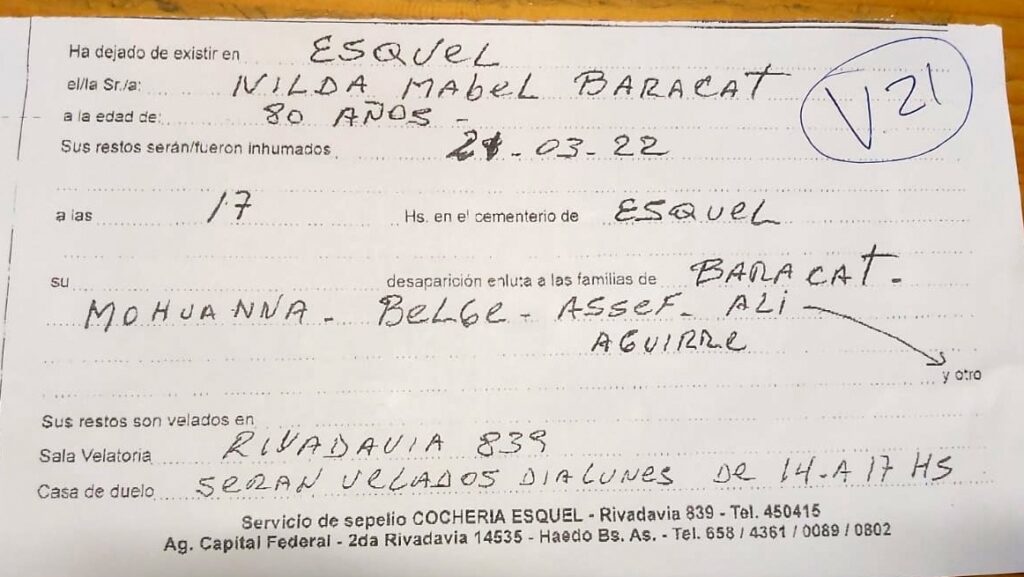 Ha dejado de existir en ESQUEL
el/la Sr./a: NILDA MABEL BARACAT
V21
a la edad de: 80 AÑOS -
Sus restos serán/fueron inhumados 21-03-22
a las 17 Hs. en el cementerio de ESQUEL
su desaparición enluta a las familias de BARACAT-
MOHUANNA- BELGE- ASSEF- ALI
AGUIRRE
y otro
Sus restos son velados en
Sala Velatoria RIVADAVIA 839
Casa de duelo SERAN VELADOS DIA LUNES DE 14-A 17 HS
Servicio de sepelio COCHERIA ESQUEL - Rivadavia 839 - Tel. 450415
Ag. Capital Federal - 2da Rivadavia 14535 - Haedo Bs. As. - Tel. 658 / 4361 / 0089 / 0802